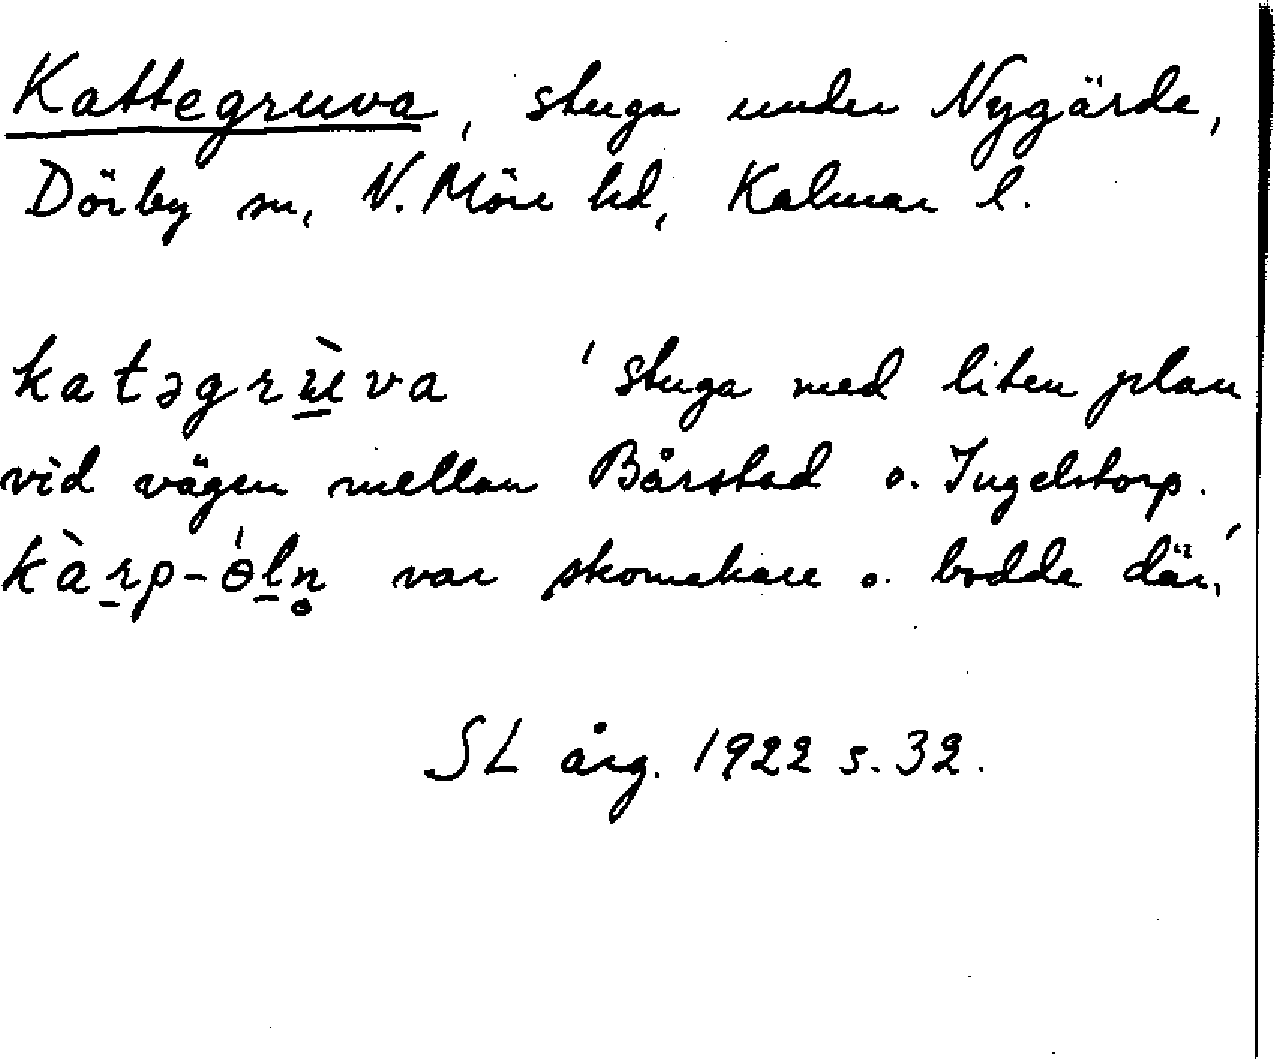 Kattegruva, stuga under Nygärde,
Dörby sn, N. Möre hd, Kalmar l.
katəgrù̱va 'stuga med liten plan
vid vägen mellan Bårstad o. Ingelstorp.
kàṟp-ɵ́ḻn̥ var skomakare o. bodde där,'
SL årg. 1922 s. 32.